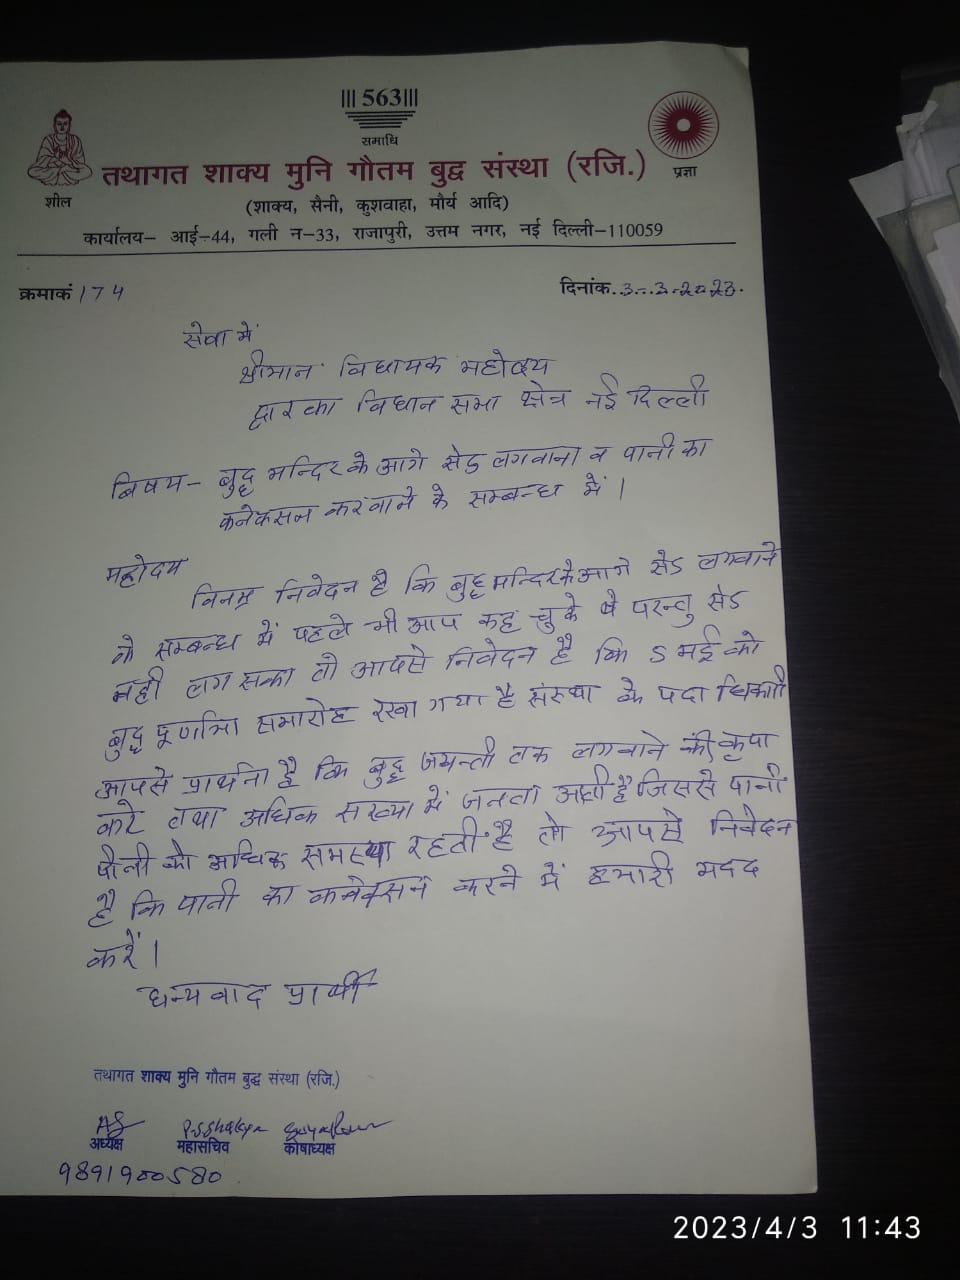 |||563|||
समाधि
शील
प्रज्ञा
तथागत शाक्य मुनि गौतम बुद्व संस्था (रजि.)
(शाक्य, सैनी, कुशवाहा, मौर्य आदि)
कार्यालय- आई-44, गली न-33, राजापुरी, उत्तम नगर, नई दिल्ली-110059
क्रमाकं 174
दिनांक. 3-3-2023.
सेवा में
श्रीमान विधायक महोदय
द्वारका विधान सभा क्षेत्र नई दिल्ली
विषय- बुद्ध मन्दिर के आगे सेड लगवाना व पानी का
कनेकसन करवाने के सम्बन्ध में।
महोदय
विनम्र निवेदन है कि बुद्ध मन्दिर के आगे सेड लगवाने
के सम्बन्ध में पहले भी आप कह चुके थे परन्तु सेड
नही लग सका तो आपसे निवेदन है कि 5 मई को
बुद्ध पूर्णामा समारोह रखा गया है संस्था के पदाधिकारी
आपसे प्रार्थना है कि बुद्ध जयन्ती तक लगवाने की कृपा
करे तथा अधिक सख्या में जनता आती है जिससे पानी
पीनी की अधिक समस्या रहती है तो आपसे निवेदन
है कि पानी का कनेक्सन करने में हमारी मदद
करें।
धन्यवाद प्रार्थी
तथागत शाक्य मुनि गौतम बुद्ध संस्था (रजि.)
P.S Shakya
अध्यक्ष महासचिव कोषाध्यक्ष
9891900580
2023/4/3 11:43